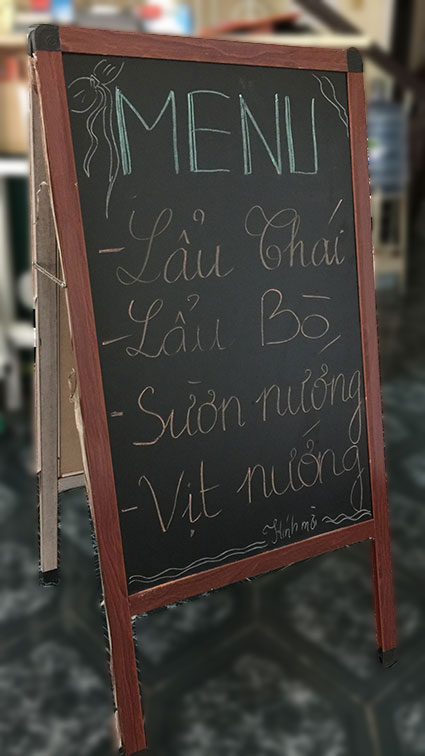 MENU
- Lẩu Thái
- Lẩu Bò
- Sườn nướng
- Vịt nướng
Kính mời